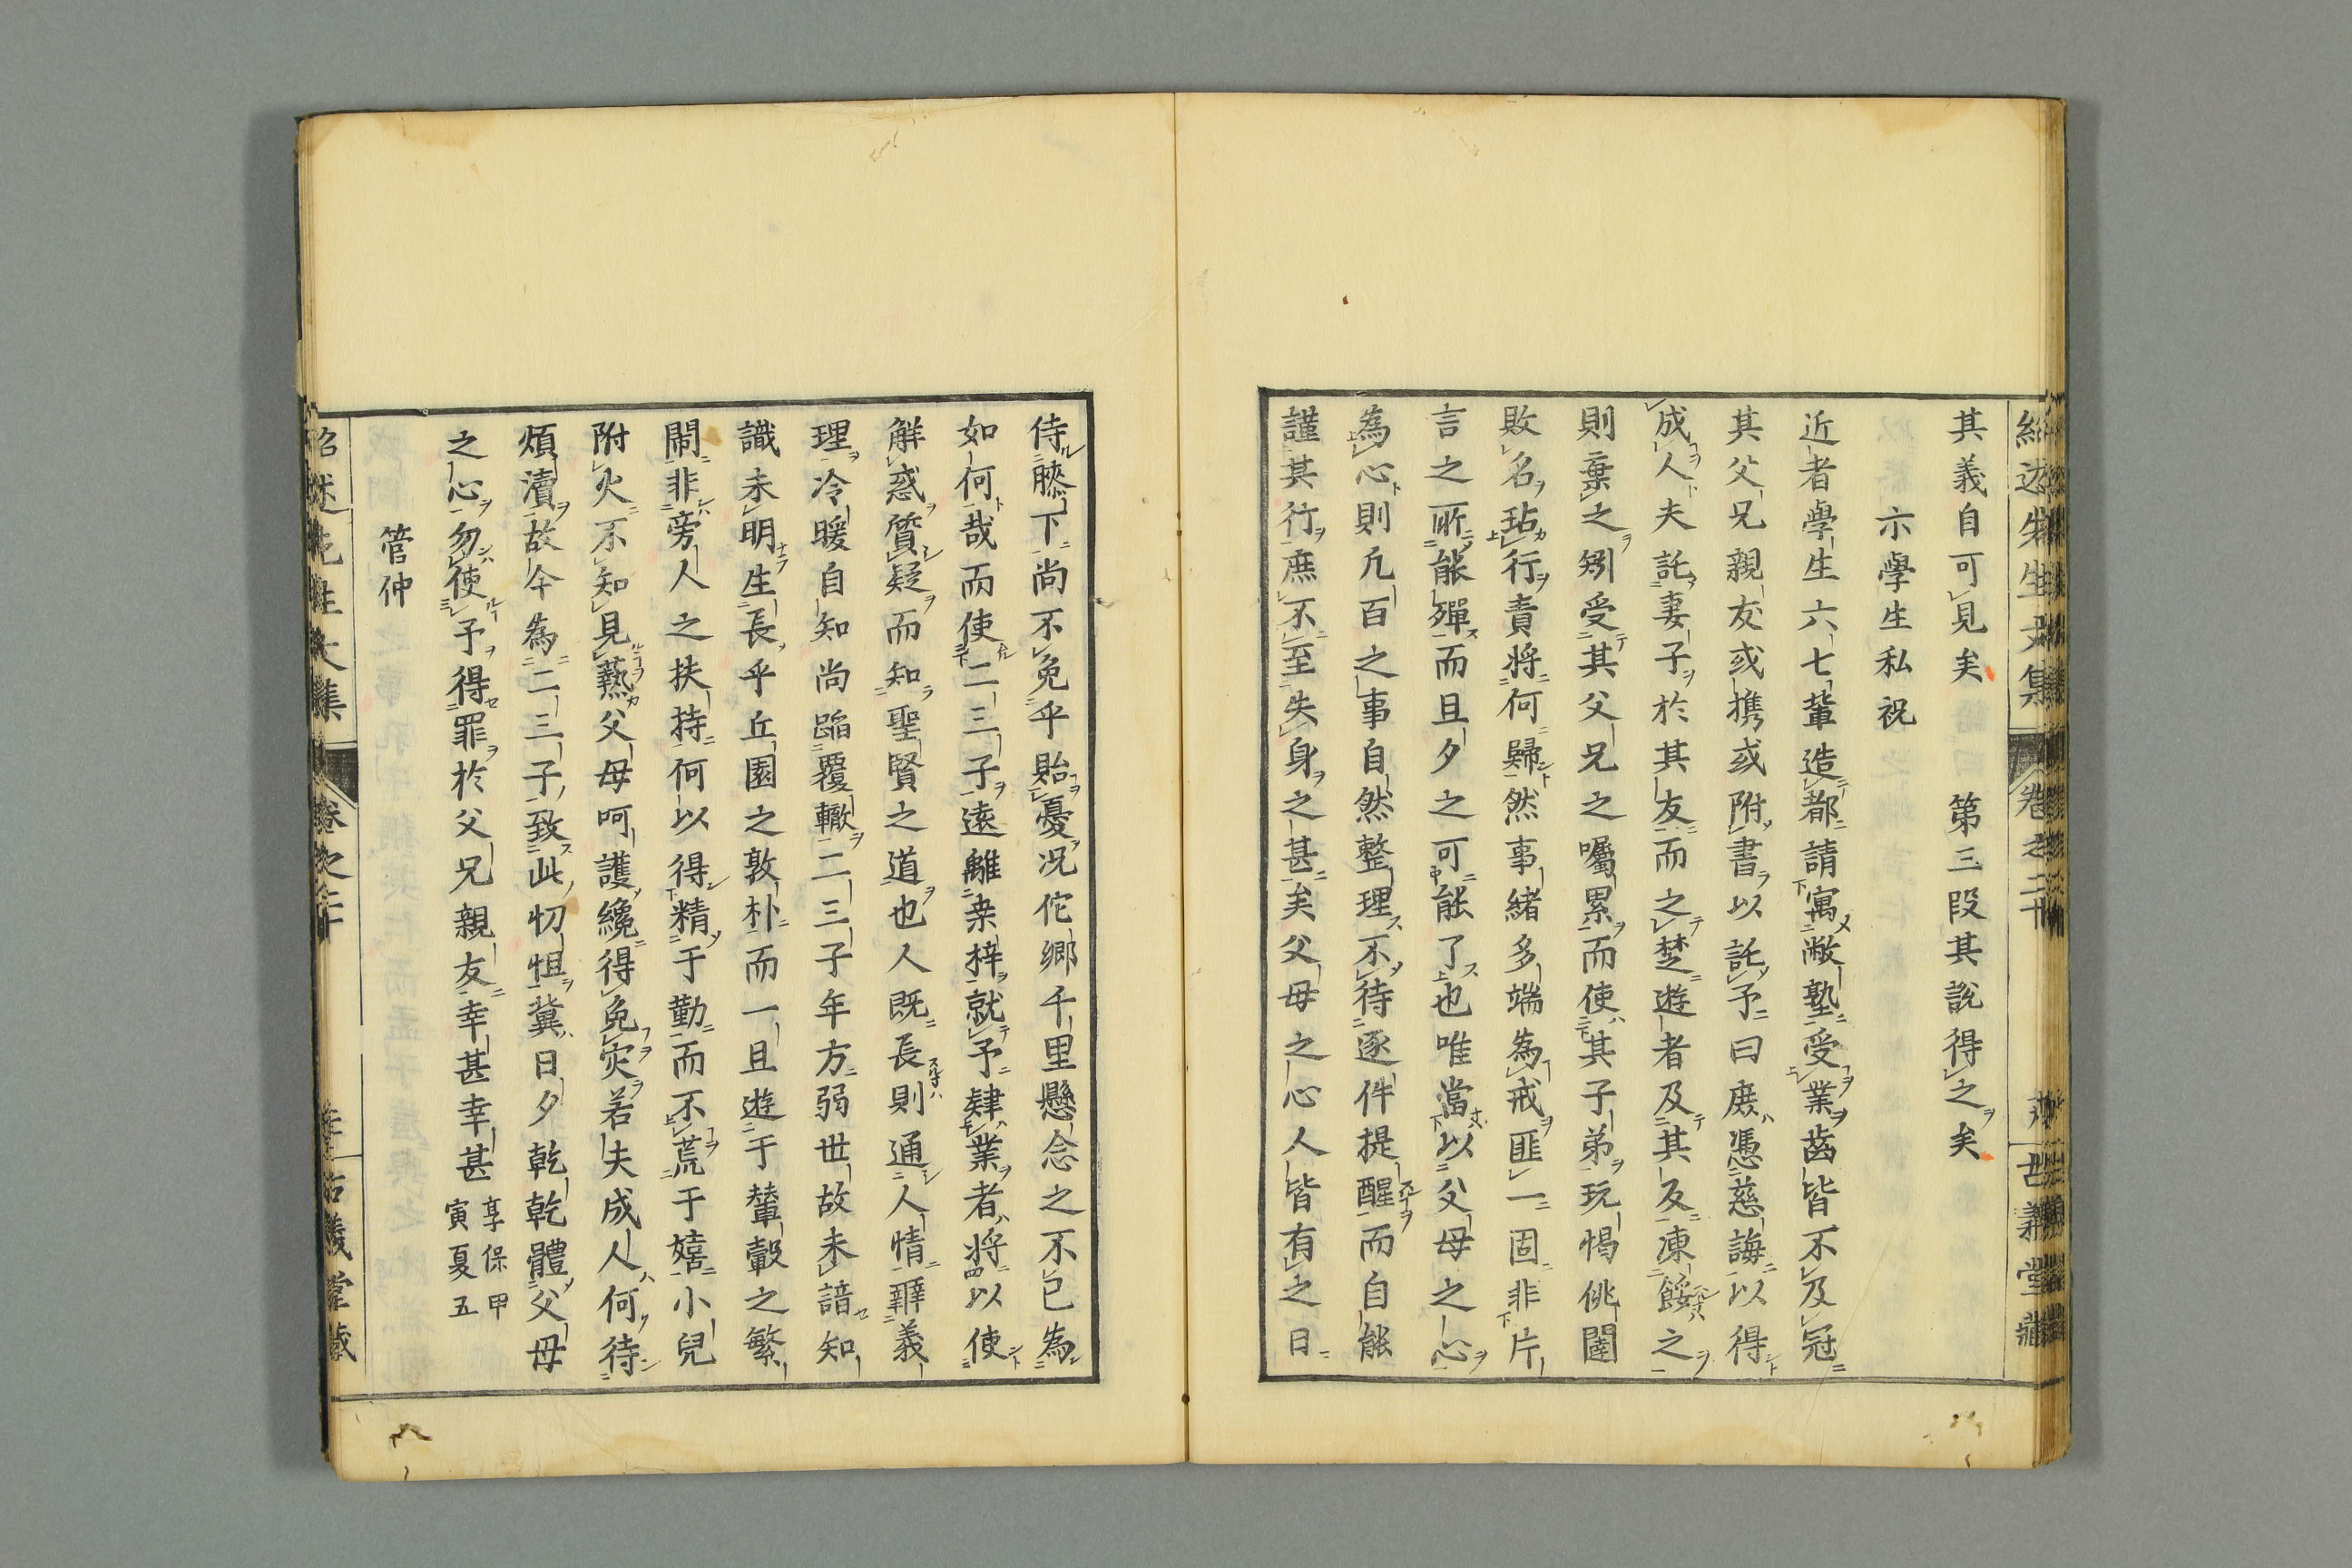 其義自可見矣　第三段其說得之矣
示學生私祝
近者學生六七輩造都請寓敝塾受業齒皆不及冠
其父兄親友或携或附書以託予曰庶憑慈誨以得
成人夫託妻子於其友而之楚遊者及其反凍餒之
則棄之矧受其父兄之囑累而使其子弟玩愒佻闥
敗名玷行責將何歸然事緒多端為戒匪一固非片
言之所能殫而且夕之可能了也唯當以父母之心
為心則凡百之事自然整理不待逐件提醒而自能
謹其行庶不至失身之甚矣父母之心人皆有之日
侍膝下尚不免乎貽憂況佗鄉千里懸念之不已為
如何哉而使二三子遠離桒梓就予肄業者將以使
解惑質疑而知聖賢之道也人既長則通人情辨義
理冷暖自知尚蹈覆轍二三子年方弱世故未諳知
識未明生長乎丘園之敦朴而一旦遊于輦轂之繁
鬧非旁人之扶持何以得精于勤而不荒于嬉小兒
附火不知見爇父母呵護纔得免灾若夫成人何待
煩瀆故今為二三子致此忉怛冀日夕乾乾體父母
之心勿使予得罪於父兄親友幸甚幸甚 享保甲
寅夏五
管仲